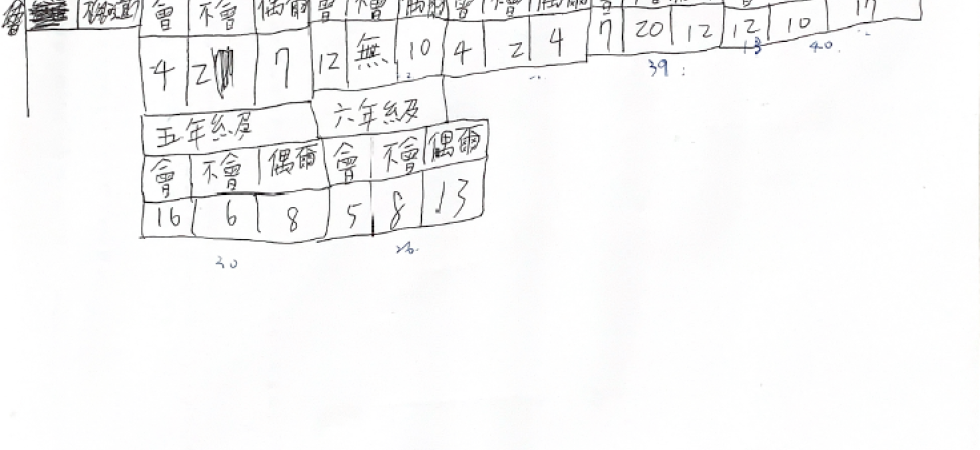 會 不會 偶爾 會 不會 偶爾 會 不會 偶爾
4 2 7 12 無 10 4 2 4 7 20 12 12 10 17
13
39 : 40.
五年級 六年級
會 不會 偶爾 會 不會 偶爾
16 6 8 5 8 13
30 26.